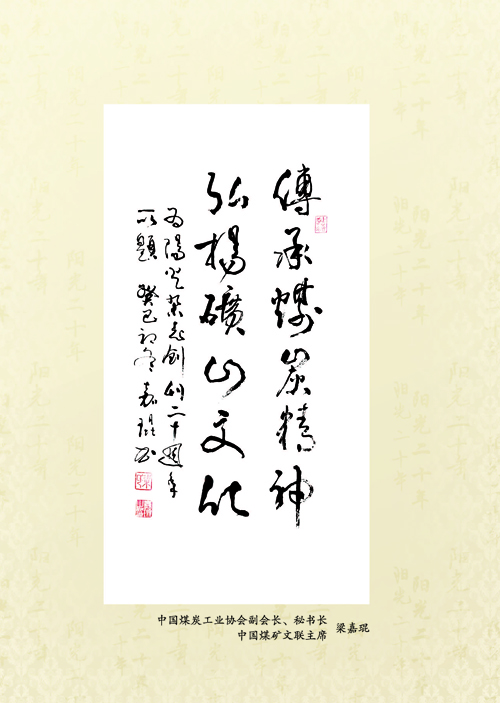 傳承煤炭精神
弘楊礦山文化
为陽光雜志創刊二十週年
所題 癸巳初冬 嘉琨书
中国煤炭工业协会副会长、秘书长
中国煤矿文联主席
梁嘉琨